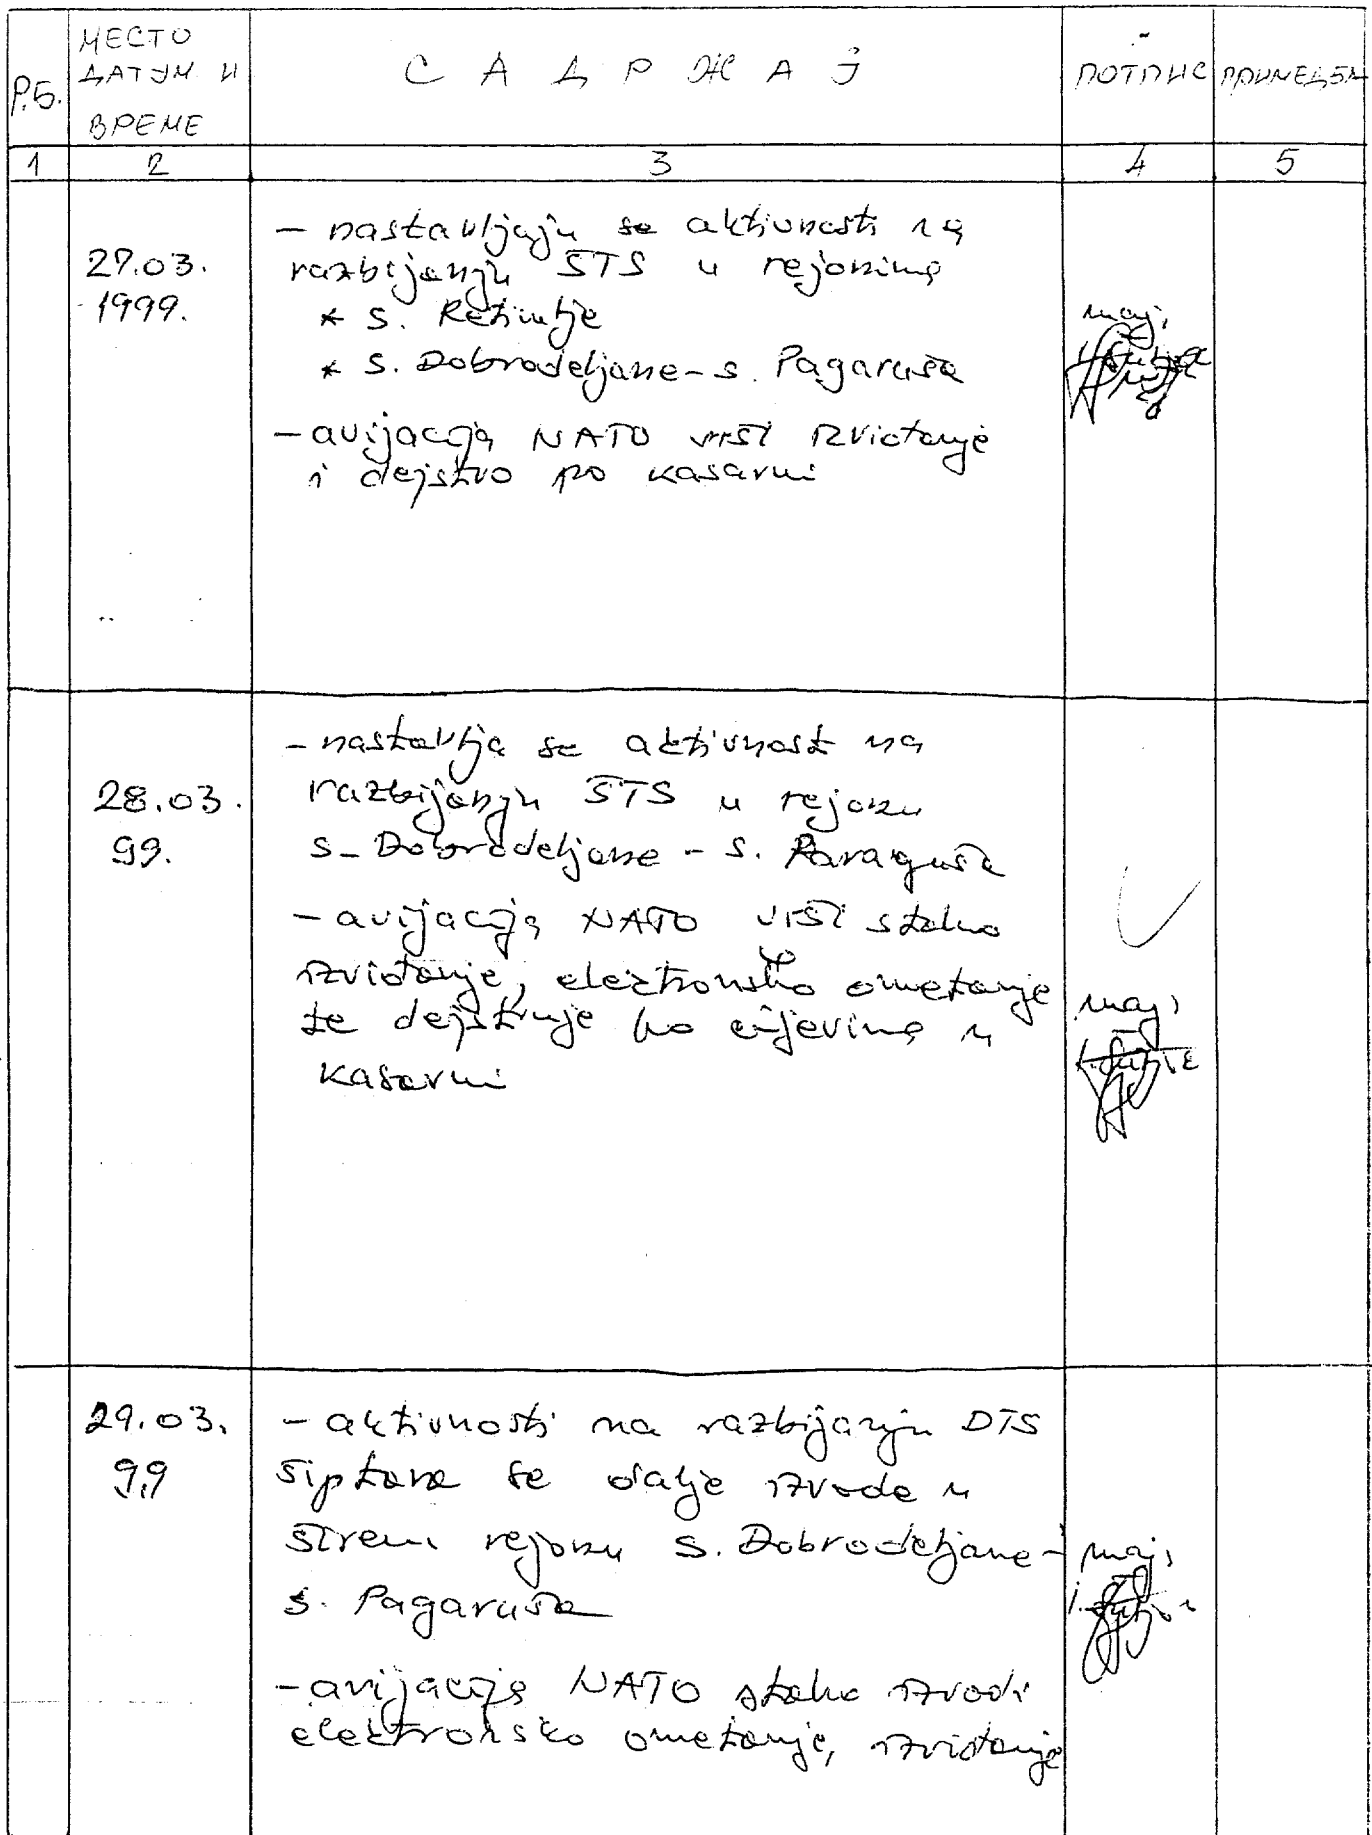 Р.Б.
МЕСТО
ДАТУМ И
ВРЕМЕ
САДРЖАЈ
ПОТПИС
ПРИМЕДБА
1 2 3 4 5
27.03.
1999.
- nastavljaju se aktivnosti na
razbijanju ŠTS u rejonima
* s. Retimlje
* s. Dobrodeljane - s. Pagaruša
- avijacija NATO vrši izviđanje
i dejstvo po kasarni
maj.
28.03.
99.
- nastavlja se aktivnost na
razbijanju ŠTS u rejonu
s. Dobrodeljane - s. Paraguša
- avijacija NATO vrši stalno
izviđanje, elektronsko ometanje
te dejstvuje po ciljevima u
kasarni
maj.
29.03.
99
- aktivnosti na razbijanju DTS
šiptara se dalje izvode u
širem rejonu s. Dobrodeljane -
s. Pagaruša
maj.
- avijacija NATO stalno izvodi
elektronsko ometanje, izviđanje